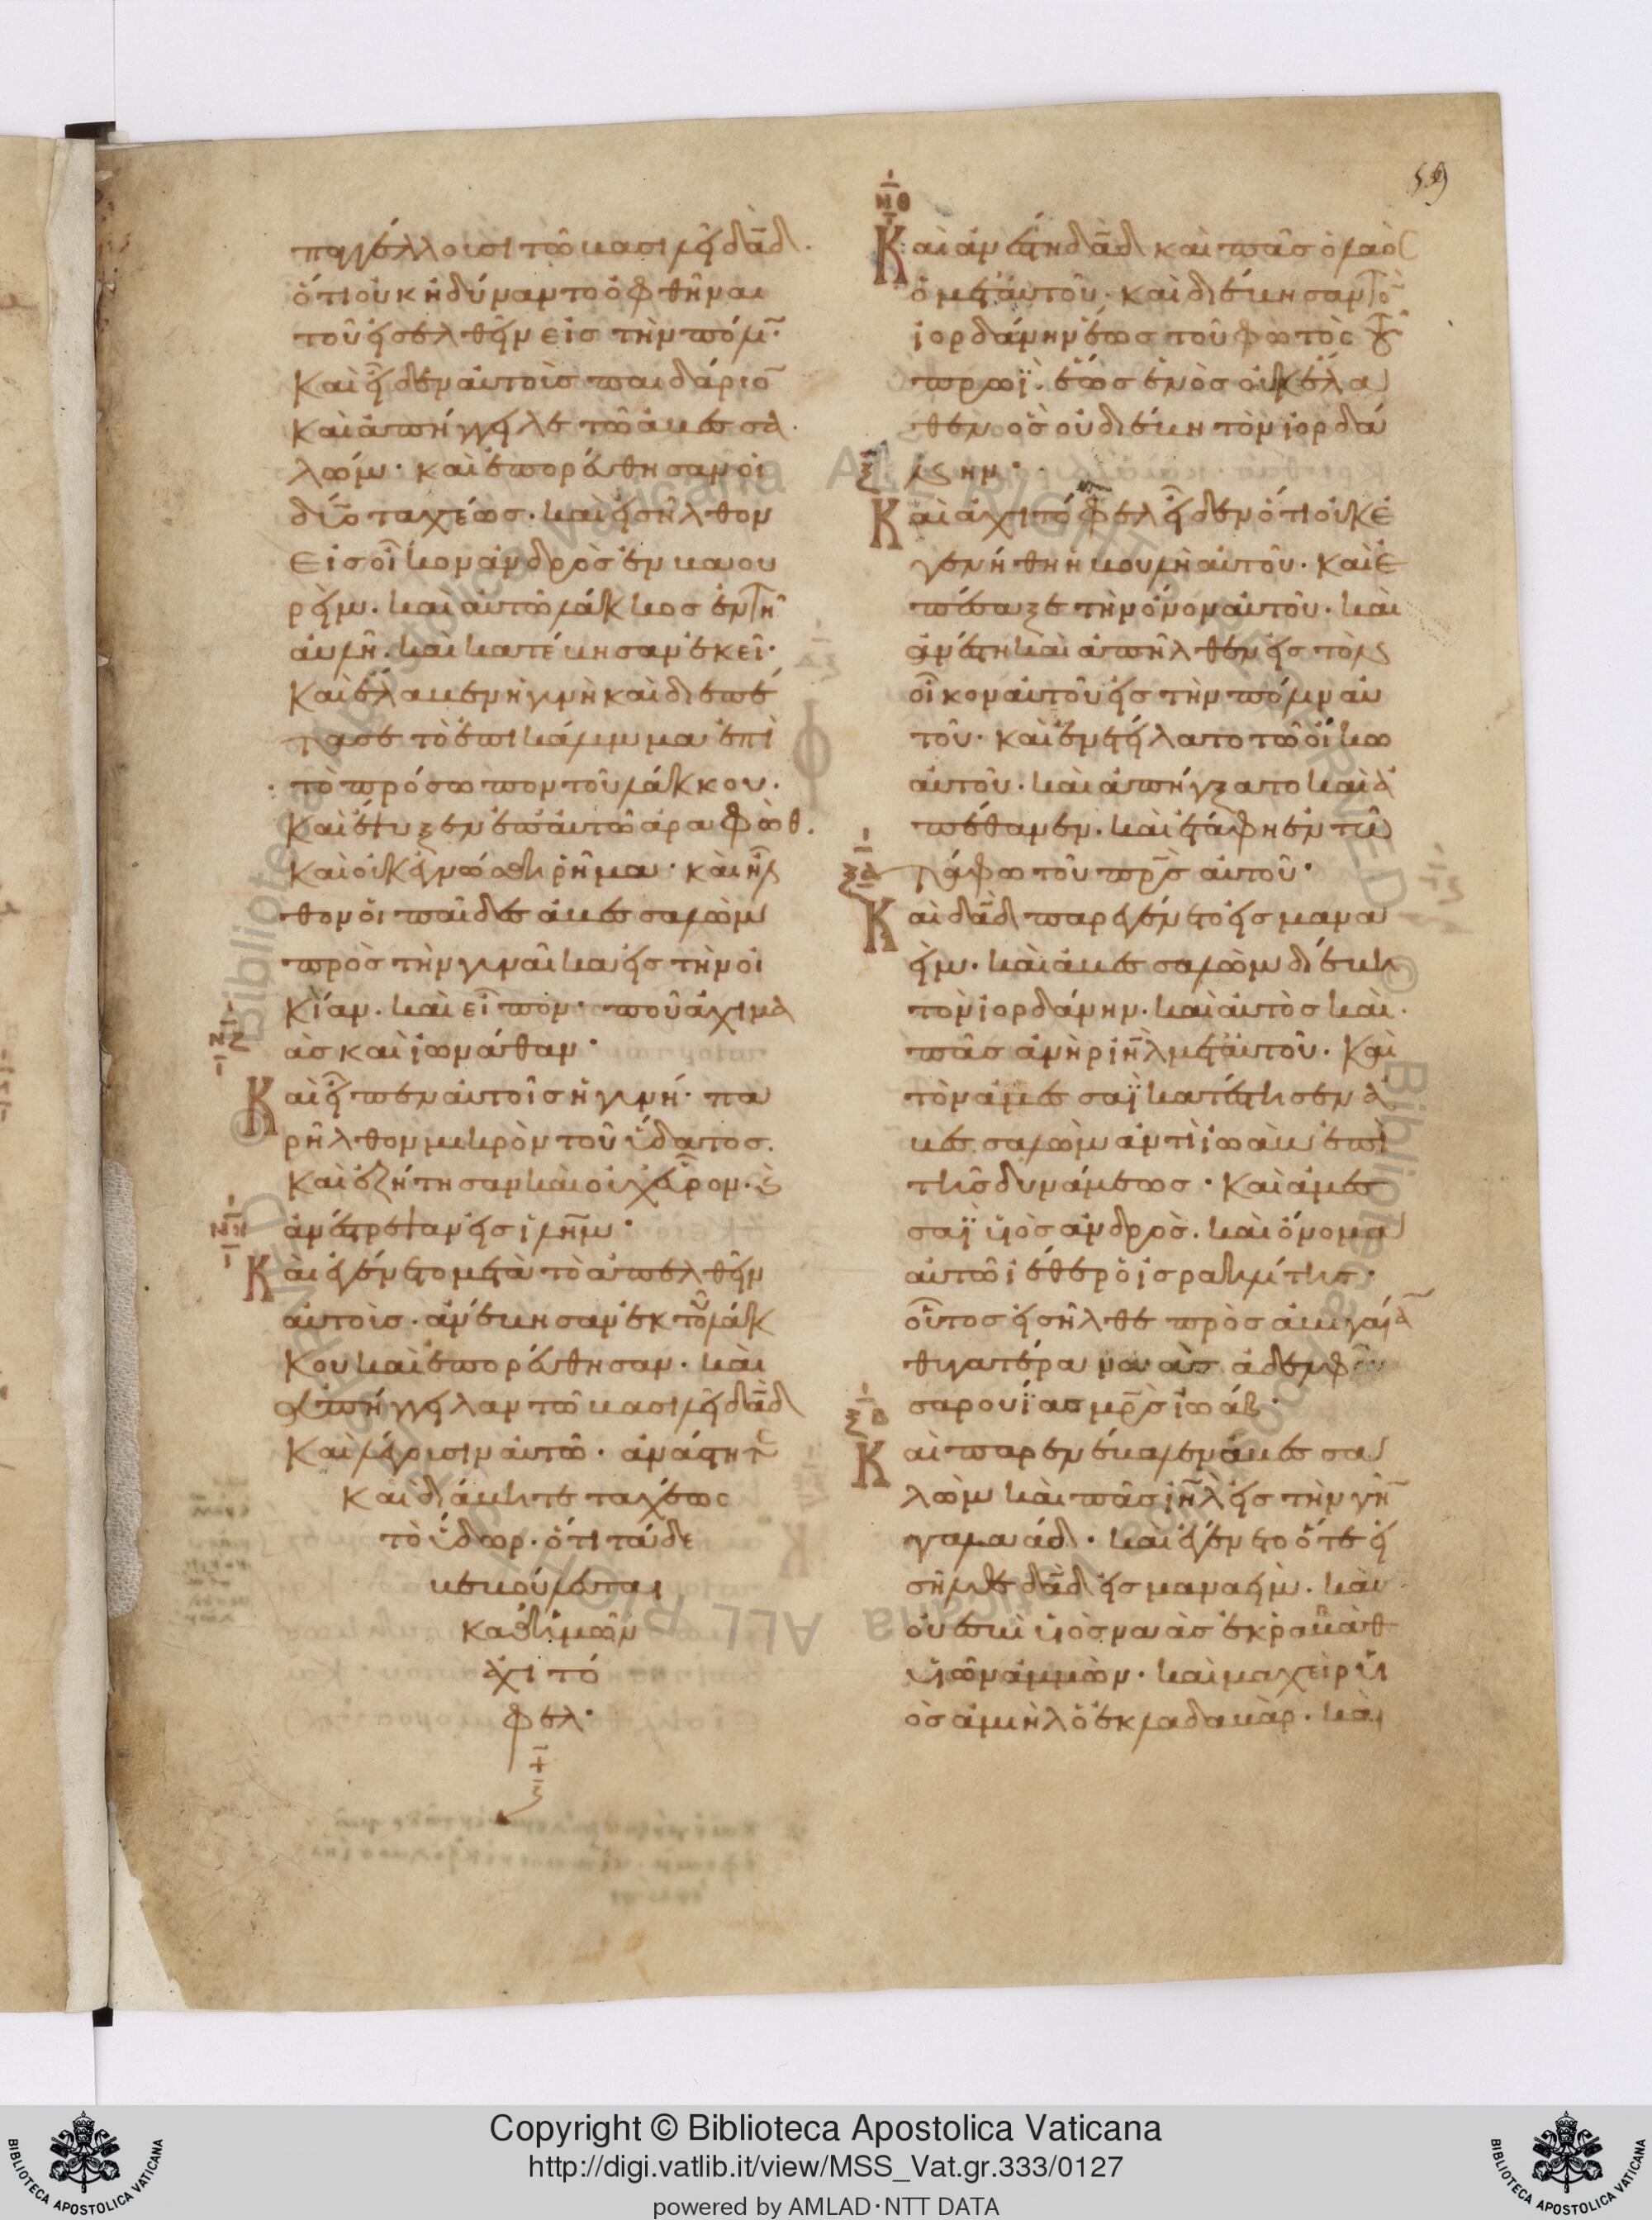 59
παγγέλλουσι τῶ βασιλεῖ δᾱδ.
ὅτι οὐκ ἠδύναντο ὀφθῆναι
τοῦ εἰσελθεῖν εἰς τὴν πόλῑ·
Καὶ εἶδεν αὐτοὺς παιδάριο̄
καὶ ἀπήγγειλε τῶ ἀβεσσα
λώμ· καὶ ἐπορεύθησαν οἱ
δύο ταχέως· καὶ εἰσῆλθον
εἰς οἶκον ἀνδρὸς ἐν βαου
ρείμ. καὶ αὐτῶ λάκκος ἐν τῆ
αὐλῆ. καὶ κατέβησαν ἐκεῖ·
Καὶ ἔλαβεν ἡ γυνὴ καὶ διεπέ
τασε τὸ ἐπικάλυμμα ἐπὶ
τὸ πρόσωπον τοῦ λάκκου.
Καὶ ἔψυξεν ἐπ' αὐτῶ ἀραφὼθ.
καὶ οὐκ ἐγνώσθη ῥῆμα· καὶ ἦλ
θον οἱ παῖδες ἀβεσσαλὼμ
πρὸς τὴν γυναῖκα εἰς τὴν οἰ
κίαν. καὶ εἶπον· ποῦ ἀχιμά
ας καὶ ἰωνάθαν·
ΝΖ
Καὶ εἶπεν αὐτοῖς ἡ γυνή· πα
ρῆλθον μικρὸν τοῦ ὕδατος.
καὶ ἐζήτησαν καὶ οὐχ εὗρον. ϗ
ἀνέστρεψαν εἰς ῑλη̄μ·
ΝΗ
Καὶ ἐγένετο μετὰ τὸ ἀπελθεῖν
αὐτοὺς. ἀνέβησαν ἐκ τοῦ λάκ
κου καὶ ἐπορεύθησαν. καὶ
ἀπήγγειλαν τῶ βασιλεῖ δᾱδ
καὶ λέγουσιν αὐτῶ· ἀνάστητε
καὶ διάβητε ταχέως
τὸ ὕδωρ. ὅτι τάδε
βεβούλευται
καθ' ἡμῶν
ἀχιτό
φελ·
ΝΘ
Καὶ ἀνέστη δᾱδ καὶ πᾶς ὁ λαὸς
ὁ μετ' αὐτοῦ· καὶ διέβησαν το̄
ἰορδάνην ἕως τοῦ φωτὸς τοῦ
πρωΐ. ἕως ἑνὸς οὐκ ἔλα
θεν ὃς οὐ διέβη τὸν ἰορδά
νην·
Ξ
Καὶ ἀχιτόφελ εἶδεν ὅτι οὐκ ἐ
γενήθη ἡ βουλὴ αὐτοῦ. καὶ ἐ
πέσαξε τὴν ὄνον αὐτοῦ. καὶ
ἀνέστη καὶ ἀπῆλθεν εἰς τὸν
οἶκον αὐτοῦ εἰς τὴν πόλιν αὐ
τοῦ· καὶ ἐνετείλατο τῶ οἴκω
αὐτοῦ. καὶ ἀπήγξατο καὶ ἀ
πέθανεν. καὶ ἐτάφη ἐν τῶ
τάφω τοῦ πρ̄ς αὐτοῦ·
ΞΑ
Καὶ δᾱδ παρεγένετο εἰς μανα
εὶμ. καὶ ἀβεσσαλὼμ διέβη
τὸν ἰορδάνην. καὶ αὐτὸς καὶ
πᾶς ἀνὴρ ιη̄λ μετ' αὐτοῦ. καὶ
τὸν ἀμεσσαῒ κατέστησεν ἀ
βεσσαλὼμ ἀντὶ ἰωὰβ ἐπὶ
τῆς δυνάμεως· καὶ ἀμεσ
σαῒ υἱὸς ἀνδρὸς. καὶ ὄνομα
αὐτῶ ἰέθερ ὁ ἰσραηλίτης·
οὗτος εἰσῆλθε πρὸς ἀβιγαίᾱ
θυγατέρα ναὰς ἀδελφὴν
σαρουΐας μρ̄ς ἰωάβ·
ΞΒ
Καὶ παρενέβαλεν ἀβεσσα
λὼμ καὶ πᾶς ιη̄λ εἰς τὴν γῆ̄
γαλαάδ· καὶ ἐγένετο ὅτε εἰ
σῆλθε δᾱδ εἰς μαναείμ. καὶ
οὐεσβὶ υἱὸς ναὰς ἐκ ραβὰθ
υἱῶν ἀμμὼν. καὶ μαχεὶρ υἱ
ὸς ἀμιὴλ ὁ ἐκ λαδαβὰρ. καὶ
Copyright © Biblioteca Apostolica Vaticana
http://digi.vatlib.it/view/MSS_Vat.gr.333/0127
powered by AMLAD·NTT DATA